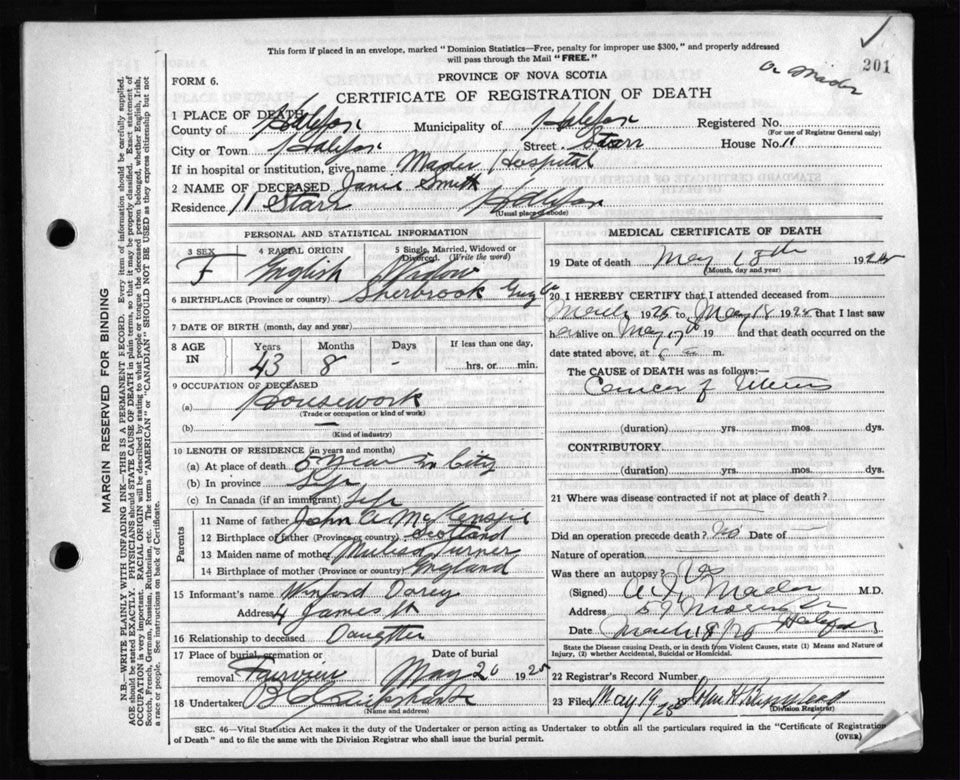 This form if placed in an envelope, marked "Dominion Statistics—Free, penalty for improper use $300," and properly addressed
will pass through the Mail "FREE."
201
FORM 6.
PROVINCE OF NOVA SCOTIA
CERTIFICATE OF REGISTRATION OF DEATH
Dr Mader
1 PLACE OF DEATH
County of Halifax Municipality of Halifax Registered No.
(For use of Registrar General only)
City or Town Halifax Street Starr House No. 11
If in hospital or institution, give name Mader Hospital
2 NAME OF DECEASED Janie Smith
Residence 11 Starr Halifax
(Usual place of abode)
PERSONAL AND STATISTICAL INFORMATION
3 SEX 4 RACIAL ORIGIN 5 Single, Married, Widowed or Divorced. (Write the word)
F English Widow
6 BIRTHPLACE (Province or country) Sherbrook Guy Co
7 DATE OF BIRTH (month, day and year)
8 AGE IN Years Months Days If less than one day,
43 8 - hrs. or min.
9 OCCUPATION OF DECEASED
(a) Housework
(Trade or occupation or kind of work)
(b) —
(Kind of industry)
10 LENGTH OF RESIDENCE (in years and months)
(a) At place of death 5 years in City
(b) In province Life
(c) In Canada (if an immigrant) Life
Parents
11 Name of father John A McKenzie
12 Birthplace of father (Province or country) Scotland
13 Maiden name of mother Turner
14 Birthplace of mother (Province or country) England
15 Informant's name Winford
Address 4 James St
16 Relationship to deceased Daughter
17 Place of burial, cremation or removal Fairview Date of burial May 20 1925
18 Undertaker
(Name and address)
MEDICAL CERTIFICATE OF DEATH
19 Date of death May 18th 192
(Month, day and year)
20 I HEREBY CERTIFY that I attended deceased from
March 192 to May 18 1925 that I last saw
her alive on May 17th 19 and that death occurred on
date stated above, at 6 a m.
The CAUSE of DEATH was as follows:—
Cancer of Uterus
(duration) yrs. mos. dys.
CONTRIBUTORY.
(duration) yrs. mos. dys.
21 Where was disease contracted if not at place of death?
Did an operation precede death? no Date of —
Nature of operation —
Was there an autopsy?
(Signed) A. I. Mader M.D.
Address 57 Morris St
Halifax
Date March 18
State the Disease causing Death, or in death from Violent Causes, state (1) Means and Nature of
Injury, (2) whether Accidental, Suicidal or Homicidal.
22 Registrar's Record Number
23 Filed May 19 1925
Division Registrar)
SEC. 46—Vital Statistics Act makes it the duty of the Undertaker or person acting as Undertaker to obtain all the particulars required in the "Certificate of Registration
of Death" and to file the same with the Division Registrar who shall issue the burial permit.
(OVER)
MARGIN RESERVED FOR BINDING
N.B.—WRITE PLAINLY WITH UNFADING INK—THIS IS A PERMANENT RECORD. Every item of information should be carefully supplied.
AGE should be stated EXACTLY. PHYSICIANS should STATE CAUSE OF DEATH in plain terms, so that it may be properly classified. Exact statement of
OCCUPATION is very important. RACIAL ORIGIN will be described by stating to what people or tongue the deceased person belonged, whether English, Irish,
Scotch, French, German, Russian, Ruthenian, etc. The terms "AMERICAN" or "CANADIAN" SHOULD NOT BE USED as they express citizenship but not
a race or people. See instructions on back of Certificate.